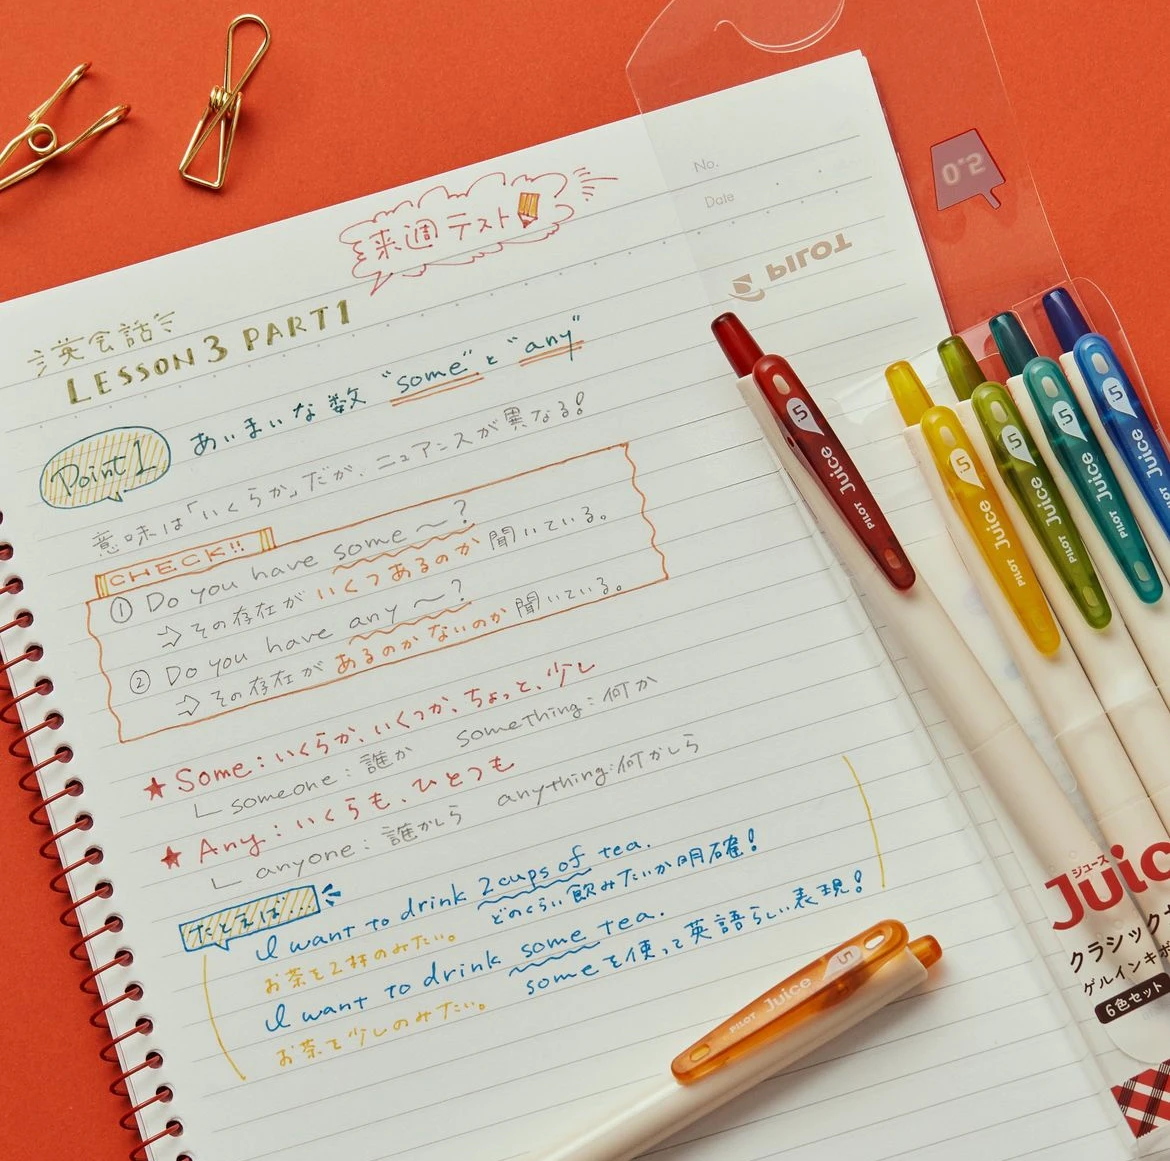 来週テスト
No.
Date
PILOT
0.5
英会話
LESSON 3 PART1
Point 1
あいまいな数 "some" と "any"
意味は「いくらか」だが、ニュアンスが異なる!
CHECK!!
① Do you have some 〜?
⇨ その存在がいくつあるのか聞いている。
② Do you have any 〜?
⇨ その存在があるのかないのか聞いている。
★ Some: いくらか、いくつか、ちょっと、少し
someone: 誰か something: 何か
★ Any: いくらも、ひとつも
anyone: 誰かしら anything: 何かしら
たとえば...
I want to drink 2 cups of tea.
お茶を2杯のみたい。 どのくらい飲みたいか明確!
I want to drink some tea.
お茶を少しのみたい。 someを使って英語らしい表現!
PILOT Juice 5
PILOT Juice 5
PILOT Juice 5
PILOT Juice 5
Juice 5
PILOT Juice 5
ジュース
Juic
クラシック
ゲルインキボ
6色セット